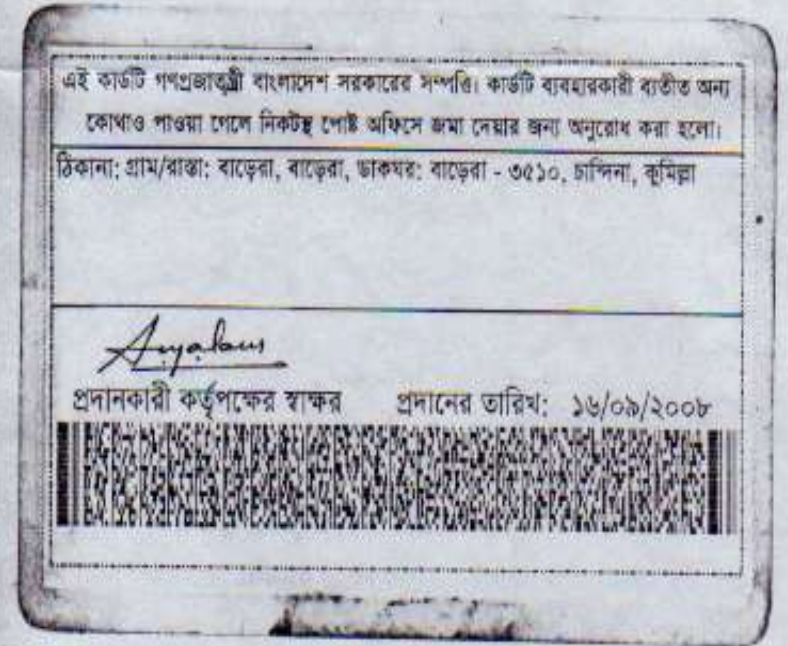 এই কার্ডটি গণপ্রজাতন্ত্রী বাংলাদেশ সরকারের সম্পত্তি। কার্ডটি ব্যবহারকারী ব্যতীত অন্য
কোথাও পাওয়া গেলে নিকটস্থ পোষ্ট অফিসে জমা দেয়ার জন্য অনুরোধ করা হলো।
ঠিকানা: গ্রাম/রাস্তা: বাড়েরা, বাড়েরা, ডাকঘর: বাড়েরা - ৩৫১০, চান্দিনা, কুমিল্লা
প্রদানকারী কর্তৃপক্ষের স্বাক্ষর প্রদানের তারিখ: ১৬/০৯/২০০৮